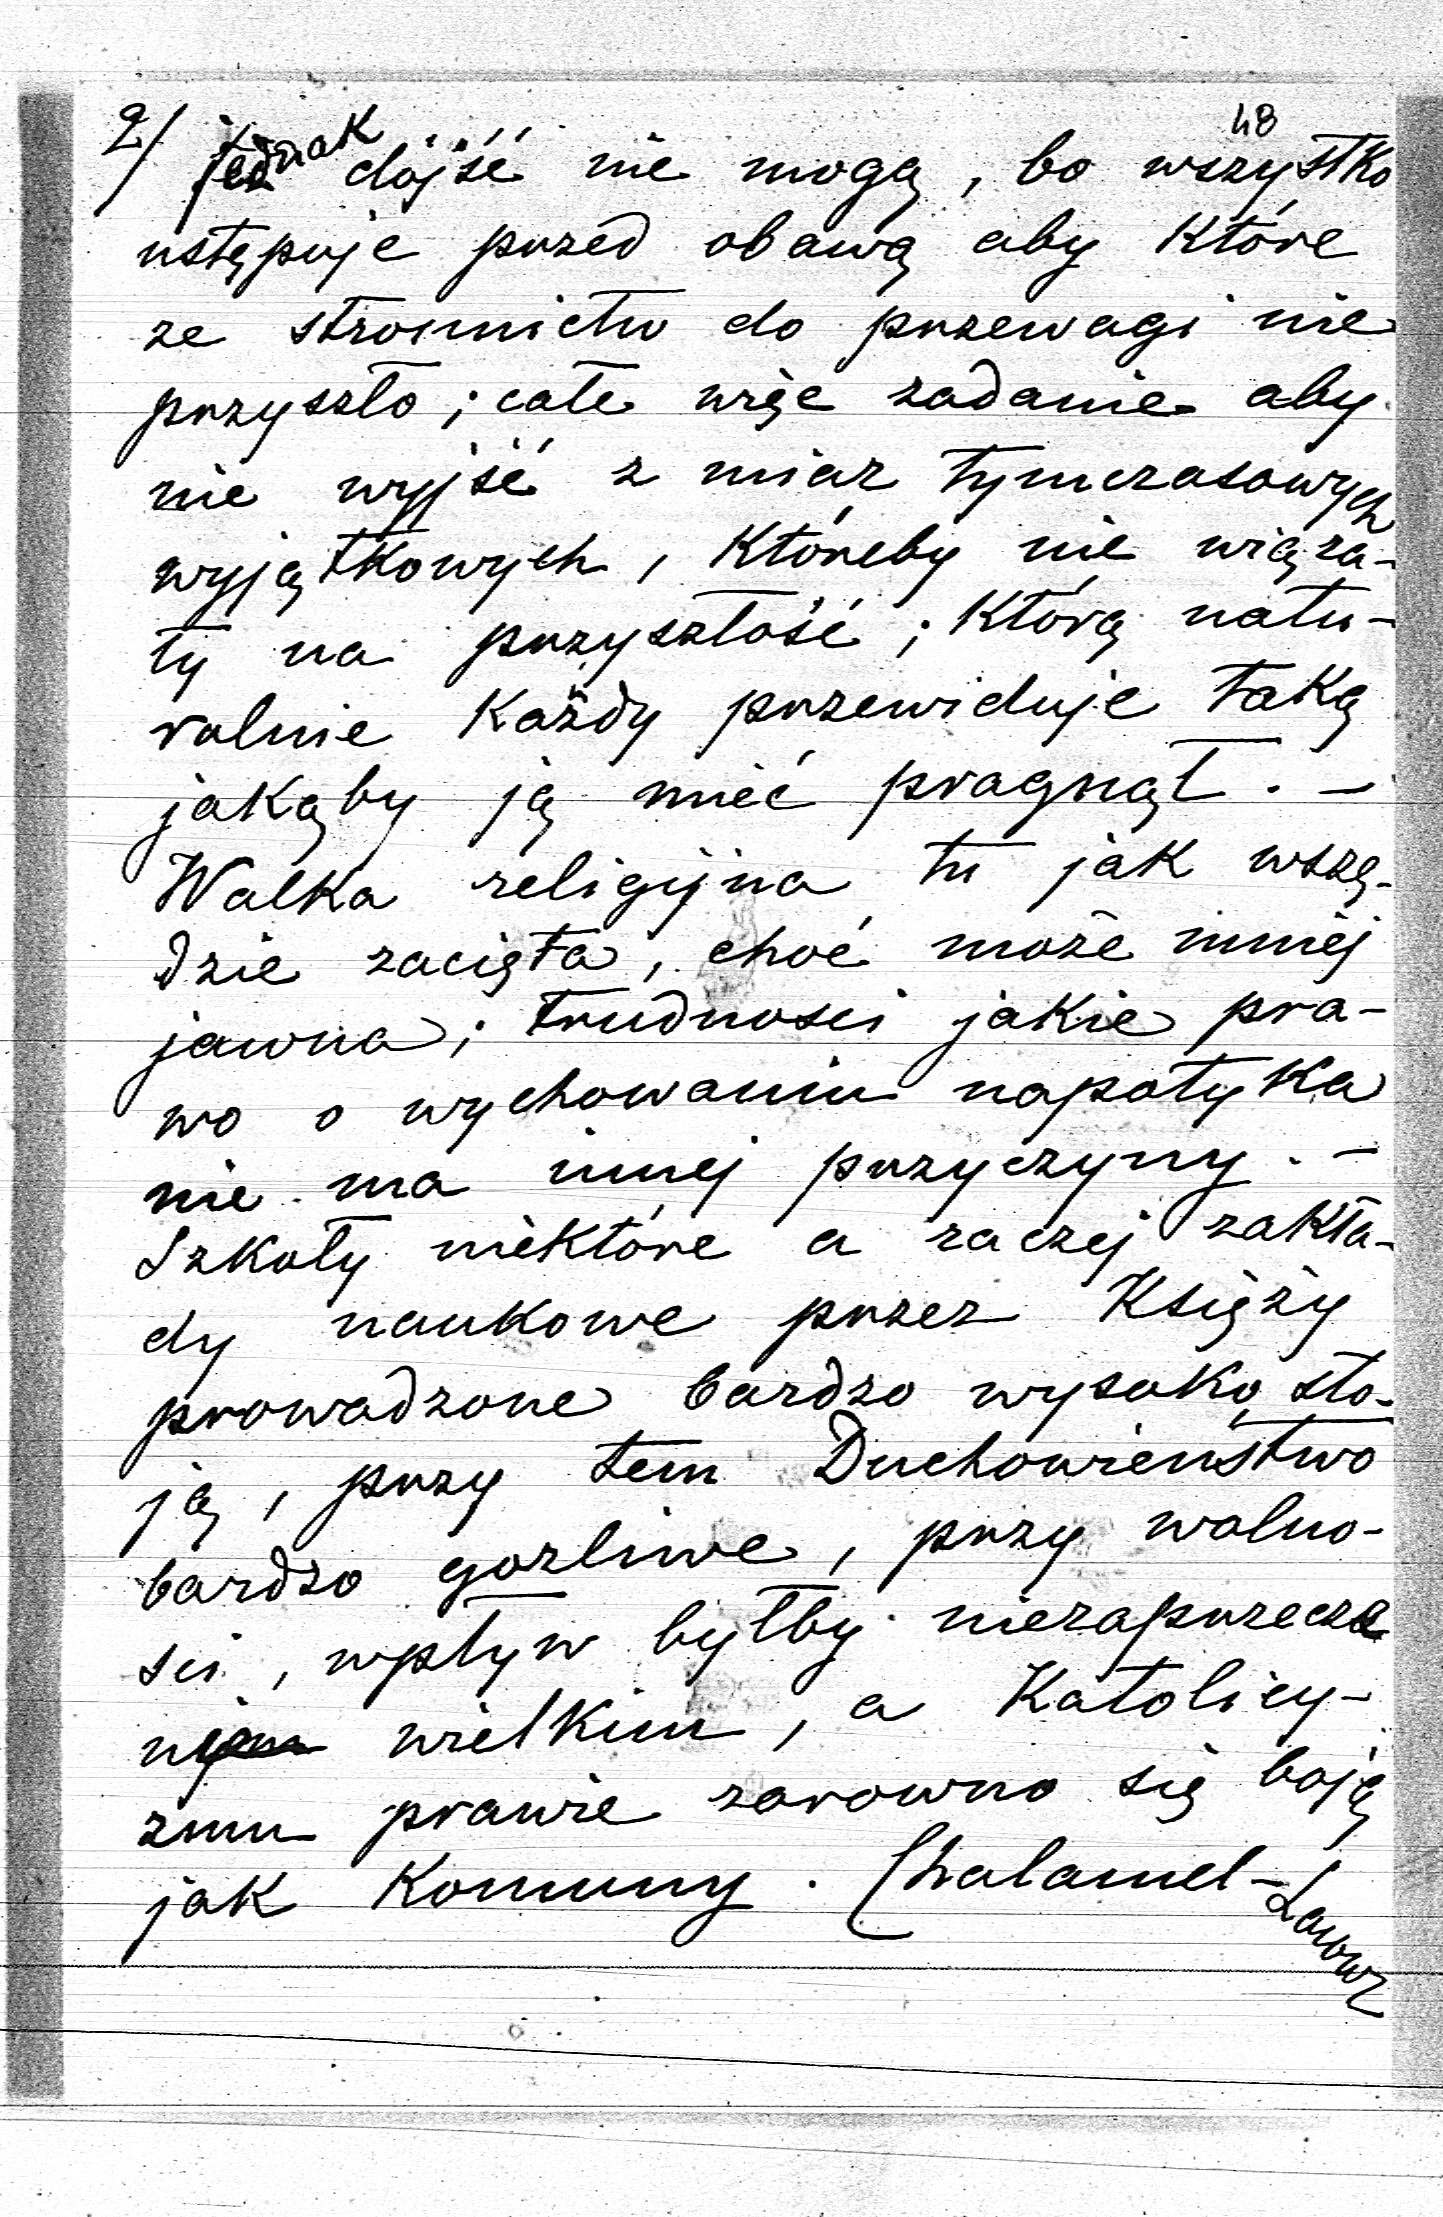 2/ 48
jednak dójść nie mogą, bo wszystko
ustępuje przed obawą aby które
ze stronnictw do przewagi nie
przyszło; całe więc zadanie aby
nie wyjść z miar tymczasowych
wyjątkowych, któreby nie wiąza-
ły na przyszłość; którą natu-
ralnie każdy przewiduje taką
jakąby ją mieć pragnął. -
Walka religijna tu jak wszę-
dzie zacięta, choć może mniéj
jawna; trudnosci jakie pra-
wo o wychowaniu napotyka
nie ma innej przyczyny. -
Szkoły niektóre a raczej zakła-
dy naukowe przez Księży
prowadzone bardzo wysoko sto-
ją, przy tem Duchowieństwo
bardzo gorliwe, przy wolno-
sci, wpływ byłby niezaprzecze
nie wielkim, a Katolicy-
zmu prawie zarowno się boją
jak Komuny. Chalamel-